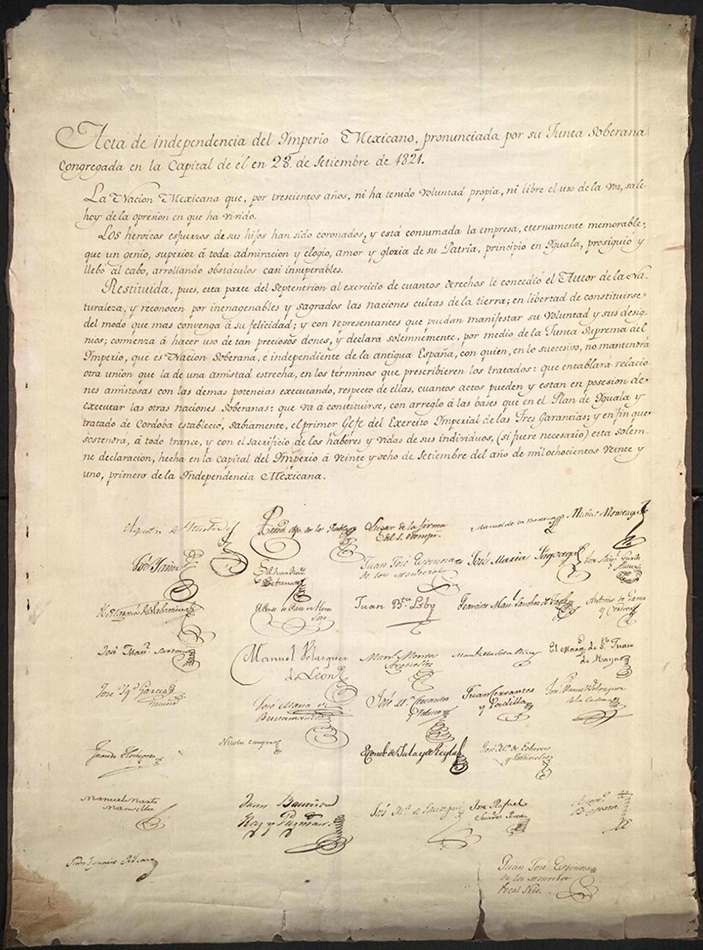 Acta de independencia del Imperio Mexicano, pronunciada por su Junta Soberana
Congregada en la Capital de él en 28. de Setiembre de 1821.
La Nacion Mexicana que, por trescientos años, ni ha tenido voluntad propia, ni libre el uso de la voz, sale
hoy de la opresion en que ha vivido.
Los heroicos esfuerzos de sus hijos han sido coronados, y está consumada la empresa, eternamente memorable,
que un genio, superior á toda admiracion y elogio, amor y gloria de su Patria, principio en Yguala, prosiguio y
llebo al cabo, arrollando obstaculos casi insuperables.
Restituida, pues, esta parte del Septentrion al exercicio de cuantos derechos le concedió el Autor de la Na-
turaleza, y reconocen por inenagenables y sagrados las naciones cultas de la tierra; en libertad de constituirse
del modo que mas convenga á su felicidad; y con representantes que puedan manifestar su Voluntad y sus desig-
nios; comienza á hacer uso de tan preciosos dones, y declara solemnemente, por medio de la Junta Suprema del
Imperio, que es Nacion Soberana, é independiente de la antigua España, con quien, en lo succesivo, no mantendrá
otra union que la de una amistad estrecha, en los términos que prescribieren los tratados: que entablará relacio-
nes amistosas con las demas potencias executando, respecto de ellas, cuantos actos pueden y estan en posesion de
executar las otras naciones Soberanas: que va á constituirse, con arreglo á las bases que en el Plan de Yguala y
tratado de Cordoba estableció, sabiamente, el primer Gefe del Exercito Imperial de las Tres Garantias; y en fin que
sostendrá, á todo trance, y con el sacrificio de los haberes y vidas de sus individuos, (si fuere necesario) esta solem-
ne declaracion, hecha en la capital del Imperio á veinte y ocho de Setiembre del año de mil ochocientos veinte y
uno, primero de la Independencia Mexicana.
Lugar de la firma
Juan José Espinosa
de los Monteros
José Maria
Juan Bta. Lobo
Manuel Velazquez
de Leon
Manl. Montes
Argüelles
El Marqs. de Sn. Juan
de Rayas
José Maria de
Bustamante
Juan Cervantes
y Padilla
José Manuel Velazquez
de la Cadena
Nicolas Campero
El conde de Jala y de Regla
Juan Bautista
Raz y Guzman
José Rafael
Suarez Pereda
Juan José Espinosa
de los Monteros
Vocal Srio.